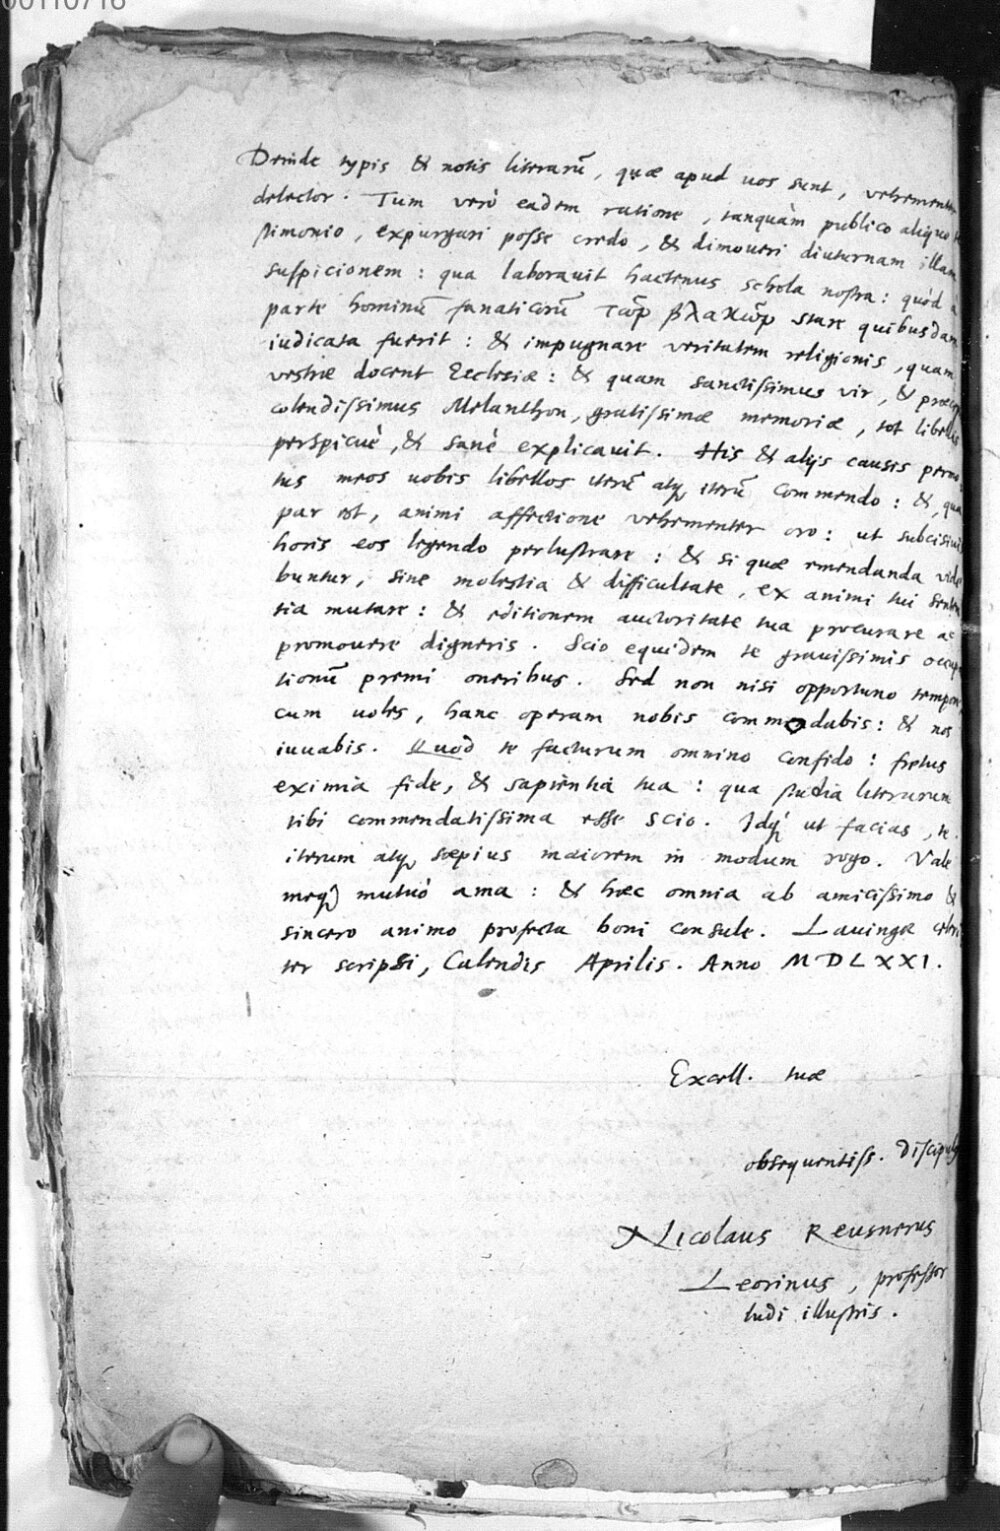 00110716
Deinde typis & notis literarū, quæ apud uos sunt, vehementer
delector. Tum verò eadem ratione, tanquàm publico aliquo te
stimonio, expurgari posse credo, & dimoueri diuturnam illam
suspicionem: qua laborauit hactenus schola nostra: quòd a
parte hominū fanaticorū τῶν βλακῶν stare quibusdam
iudicata fuerit: & impugnare veritatem religionis, quam
vestræ docent Ecclesiæ: & quam sanctissimus vir, & præcep
colendissimus Melanthon, gratissimæ memoriæ, tot libellis
perspicuè, & sanè explicauit. His & alijs causis permo
tus meos uobis libellos iterū atq; iterū commendo: & qua
par est, animi affectione vehementer oro: ut subcisiuis
horis eos legendo perlustrare: & si quæ emendanda vide
buntur, sine molestia & difficultate, ex animi tui senten
tia mutare: & editionem auctoritate tua procurare ac
promouere digneris. Scio equidem te grauissimis occupa
tionū premi oneribus. Sed non nisi opportuno tempore,
cum uoles, hanc operam nobis commodabis: & nos
iuuabis. Quod te facturum omnino confido: fretus
eximia fide, & sapientia tua: qua studia literarum
tibi commendatissima esse scio. Idq; ut facias, te
iterum atq; sæpius maiorem in modum rogo. Vale
meq; mutuò ama: & hæc omnia ab amicissimo &
sincero animo profecta boni consule. Lauingæ celeri
ter scripsi, Calendis Aprilis. Anno MDLXXI.
Excell. tuæ
obsequentiss. discipulus
Nicolaus Reusnerus
Leorinus, professor
ludi illustris.